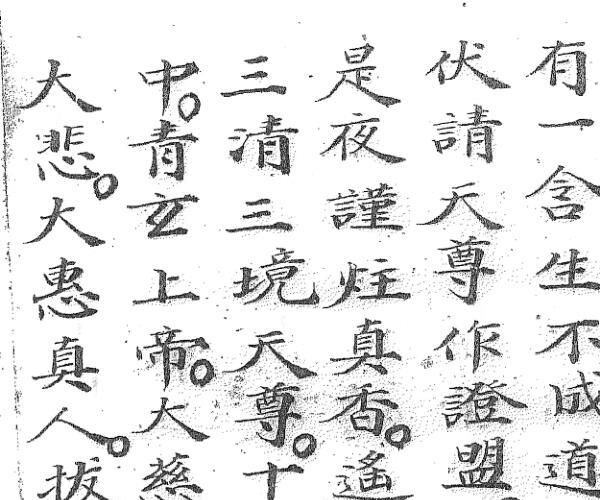 有一含生不成道
伏請天尊作證盟
是夜謹炷真香。遙
三清三境天尊。十
中。青玄上帝。大慈
大悲。大惠真人。拔